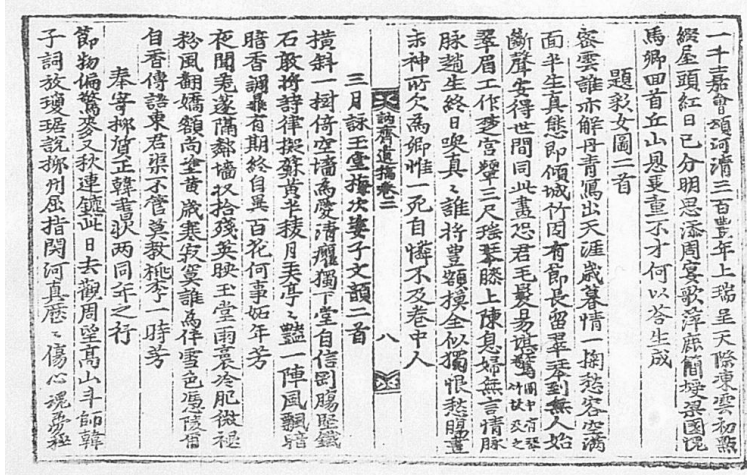 一千嘉會頌河清三百豊年上瑞呈天際東雲初點
綴屋頭紅日已分明恩添周宴歌萍鹿簡
馬卿回首丘山恩更重不才何以答生成
題彩女圖二首
密雲誰亦解丹青寫出天涯歲暮情一掬愁容空滿
面半生真態即傾城竹因有節長留翠琴到無人始
斷聲安得世間同此畫恐君毛髮易
翠眉工作楚宮顰三尺瑤琴膝上陳息婦無言情脉
脉趙生終日喚真〻誰將豊額摸金似獨恨愁腸畫
未神所欠為卿惟一死自憐不及卷中人
訥齋遺稿卷二
八
三月詠玉堂梅次梁子文韻二首
橫斜一樹倚空墻為愛清癯獨下堂自信剛腸堅鐵
石敢將詩律擬蘇黃半稜月上亭〻豔一陣風飄暗
暗香調鼎有期終自異百花何事妬年芳
夜聞羌篴隔鄰墻收拾殘英映玉堂雨裛冷肥微褪
粉風翻嬌額尚塗黃歲寒寂寞誰為伴雪色憑陵
自香傳語東君渠不管莫教桃李一時芳
奉寄柳韓兩同年之行
節物偏驚麥又秋連鑣此日去觀周望高山斗師韓
子詞放瓊琚說柳州屈指関河真歷〻傷心魂夢